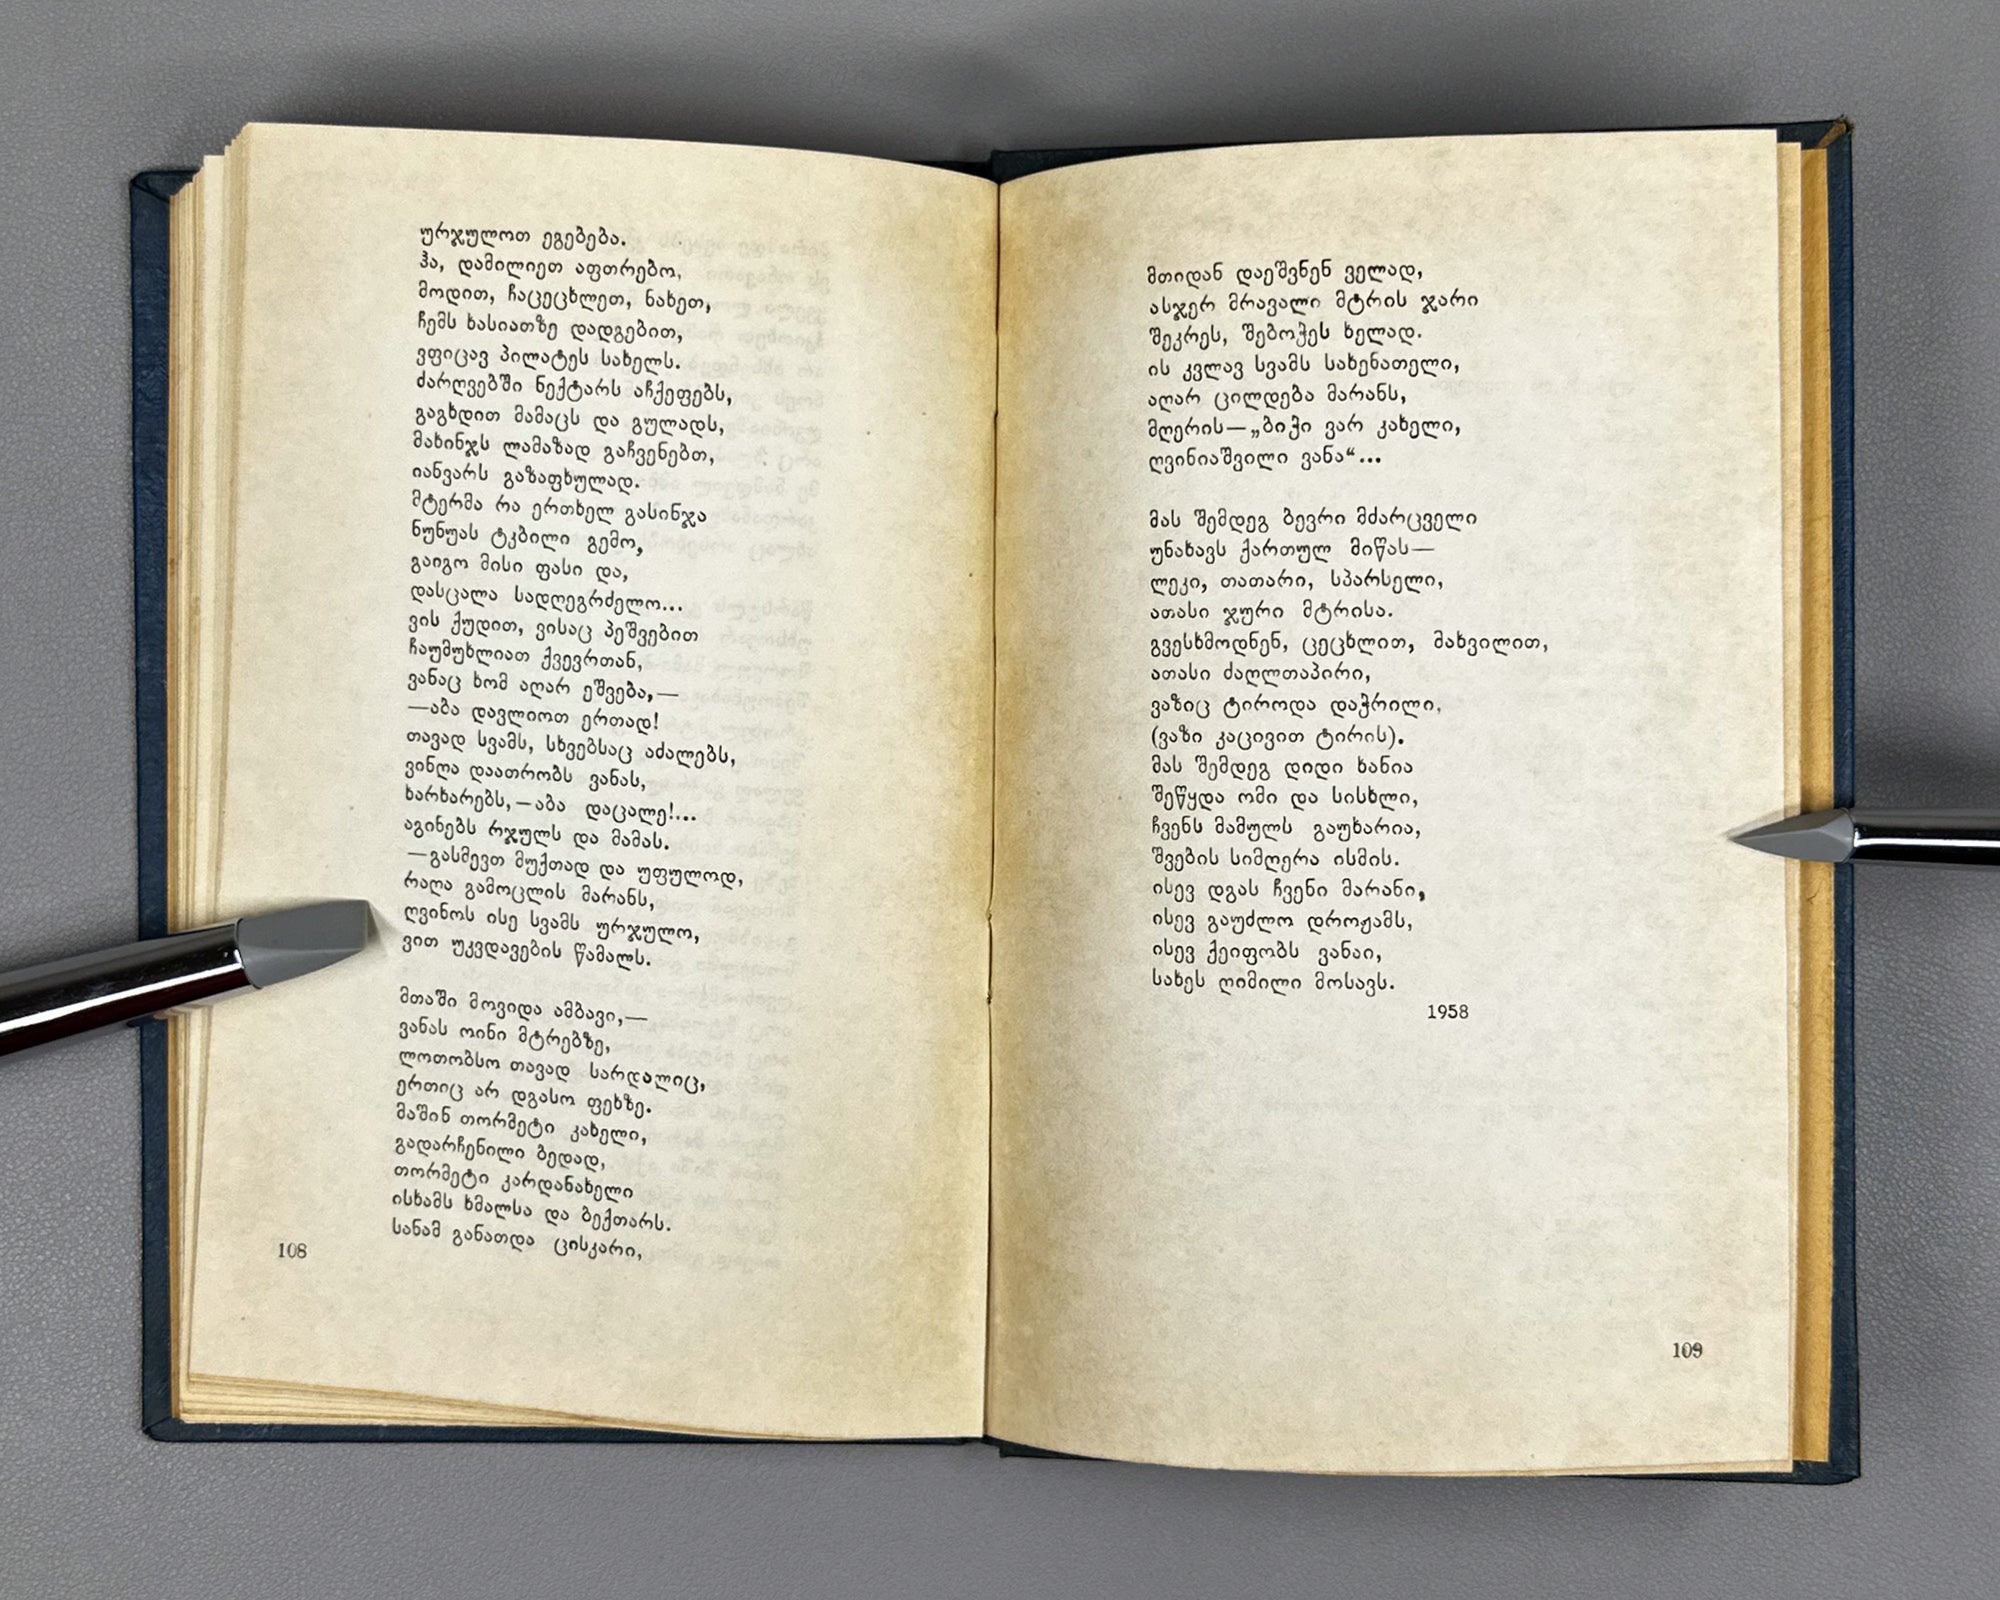 ურჯულოთ ეგებება.
ჰა, დამილიეთ აფთრებო,
მოდით, ჩაცეცხლეთ, ნახეთ,
ჩემს ხასიათზე დადგებით,
ვფიცავ პილატეს სახელს.
ძარღვებში ნექტარს აჩქეფებს,
გაგხდით მამაცს და გულადს,
მახინჯს ლამაზად გაჩვენებთ,
იანვარს გაზაფხულად.
მტერმა რა ერთხელ გასინჯა
ნუნუას ტკბილი გემო,
გაიგო მისი ფასი და,
დასცალა სადღეგრძელო...
ვის ქუდით, ვისაც პეშვებით
ჩაუმუხლიათ ქვევრთან,
ვანაც ხომ აღარ ეშვება,—
—აბა დავლიოთ ერთად!
თავად სვამს, სხვებსაც აძალებს,
ვინღა დაათრობს ვანას,
ხარხარებს,—აბა დაცალე!...
აგინებს რჯულს და მამას.
—გასმევთ მუქთად და უფულოდ,
რაღა გამოცლის მარანს,
ღვინოს ისე სვამს ურჯულო,
ვით უკვდავების წამალს.
მთაში მოვიდა ამბავი,—
ვანას ოინი მტრებზე,
ლოთობსო თავად სარდალიც,
ერთიც არ დგასო ფეხზე.
მაშინ თორმეტი კახელი,
გადარჩენილი ბედად,
თორმეტი კარდანახელი
ისხამს ხმალსა და ბექთარს.
სანამ განათდა ცისკარი,
108
მთიდან დაეშვნენ ველად,
ასჯერ მრავალი მტრის ჯარი
შეკრეს, შებოჭეს ხელად.
ის კვლავ სვამს სახენათელი,
აღარ ცილდება მარანს,
მღერის—„ბიჭი ვარ კახელი,
ღვინიაშვილი ვანა“...
მას შემდეგ ბევრი მძარცველი
უნახავს ქართულ მიწას—
ლეკი, თათარი, სპარსელი,
ათასი ჯური მტრისა.
გვესხმოდნენ, ცეცხლით, მახვილით,
ათასი ძაღლთაპირი,
ვაზიც ტიროდა დაჭრილი,
(ვაზი კაცივით ტირის).
მას შემდეგ დიდი ხანია
შეწყდა ომი და სისხლი,
ჩვენს მამულს გაუხარია,
შვების სიმღერა ისმის.
ისევ დგას ჩვენი მარანი,
ისევ გაუძლო დროჟამს,
ისევ ქეიფობს ვანაი,
სახეს ღიმილი მოსავს.
1958
109